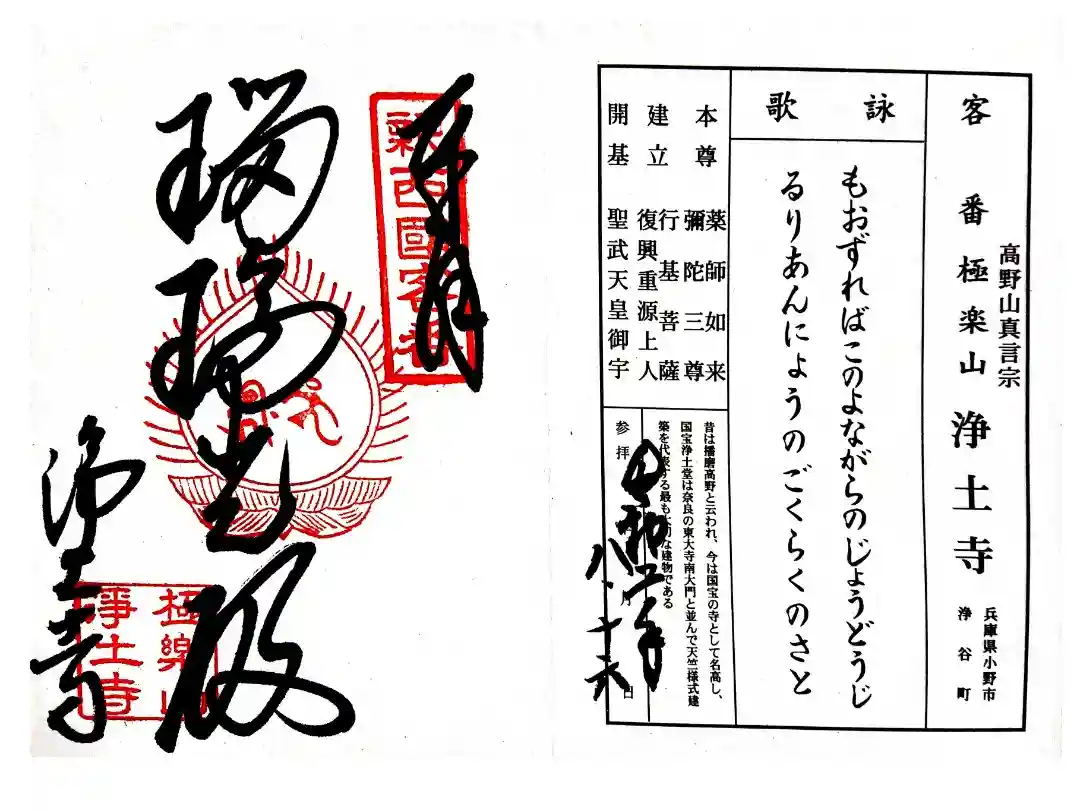 客番極楽山浄土寺
高野山真言宗
兵庫県小野市
浄谷町
詠歌
もおずればこのよながらのじょうどうじ
るりあんにようのごくらくのさと
本尊 薬師如来
彌陀三尊
建立 行基菩薩
復興重源上人
開基 聖武天皇御宇
昔は播磨高野と云われ、今は国宝の寺として名高し、
国宝浄土堂は奈良の東大寺南大門と並んで天竺様式建
築を代表する最も大切な建物である
参拝 月 日
令和二年
八、十六
奉拝
新西國客番
瑠璃光殿
浄土寺
極樂山
淨土寺